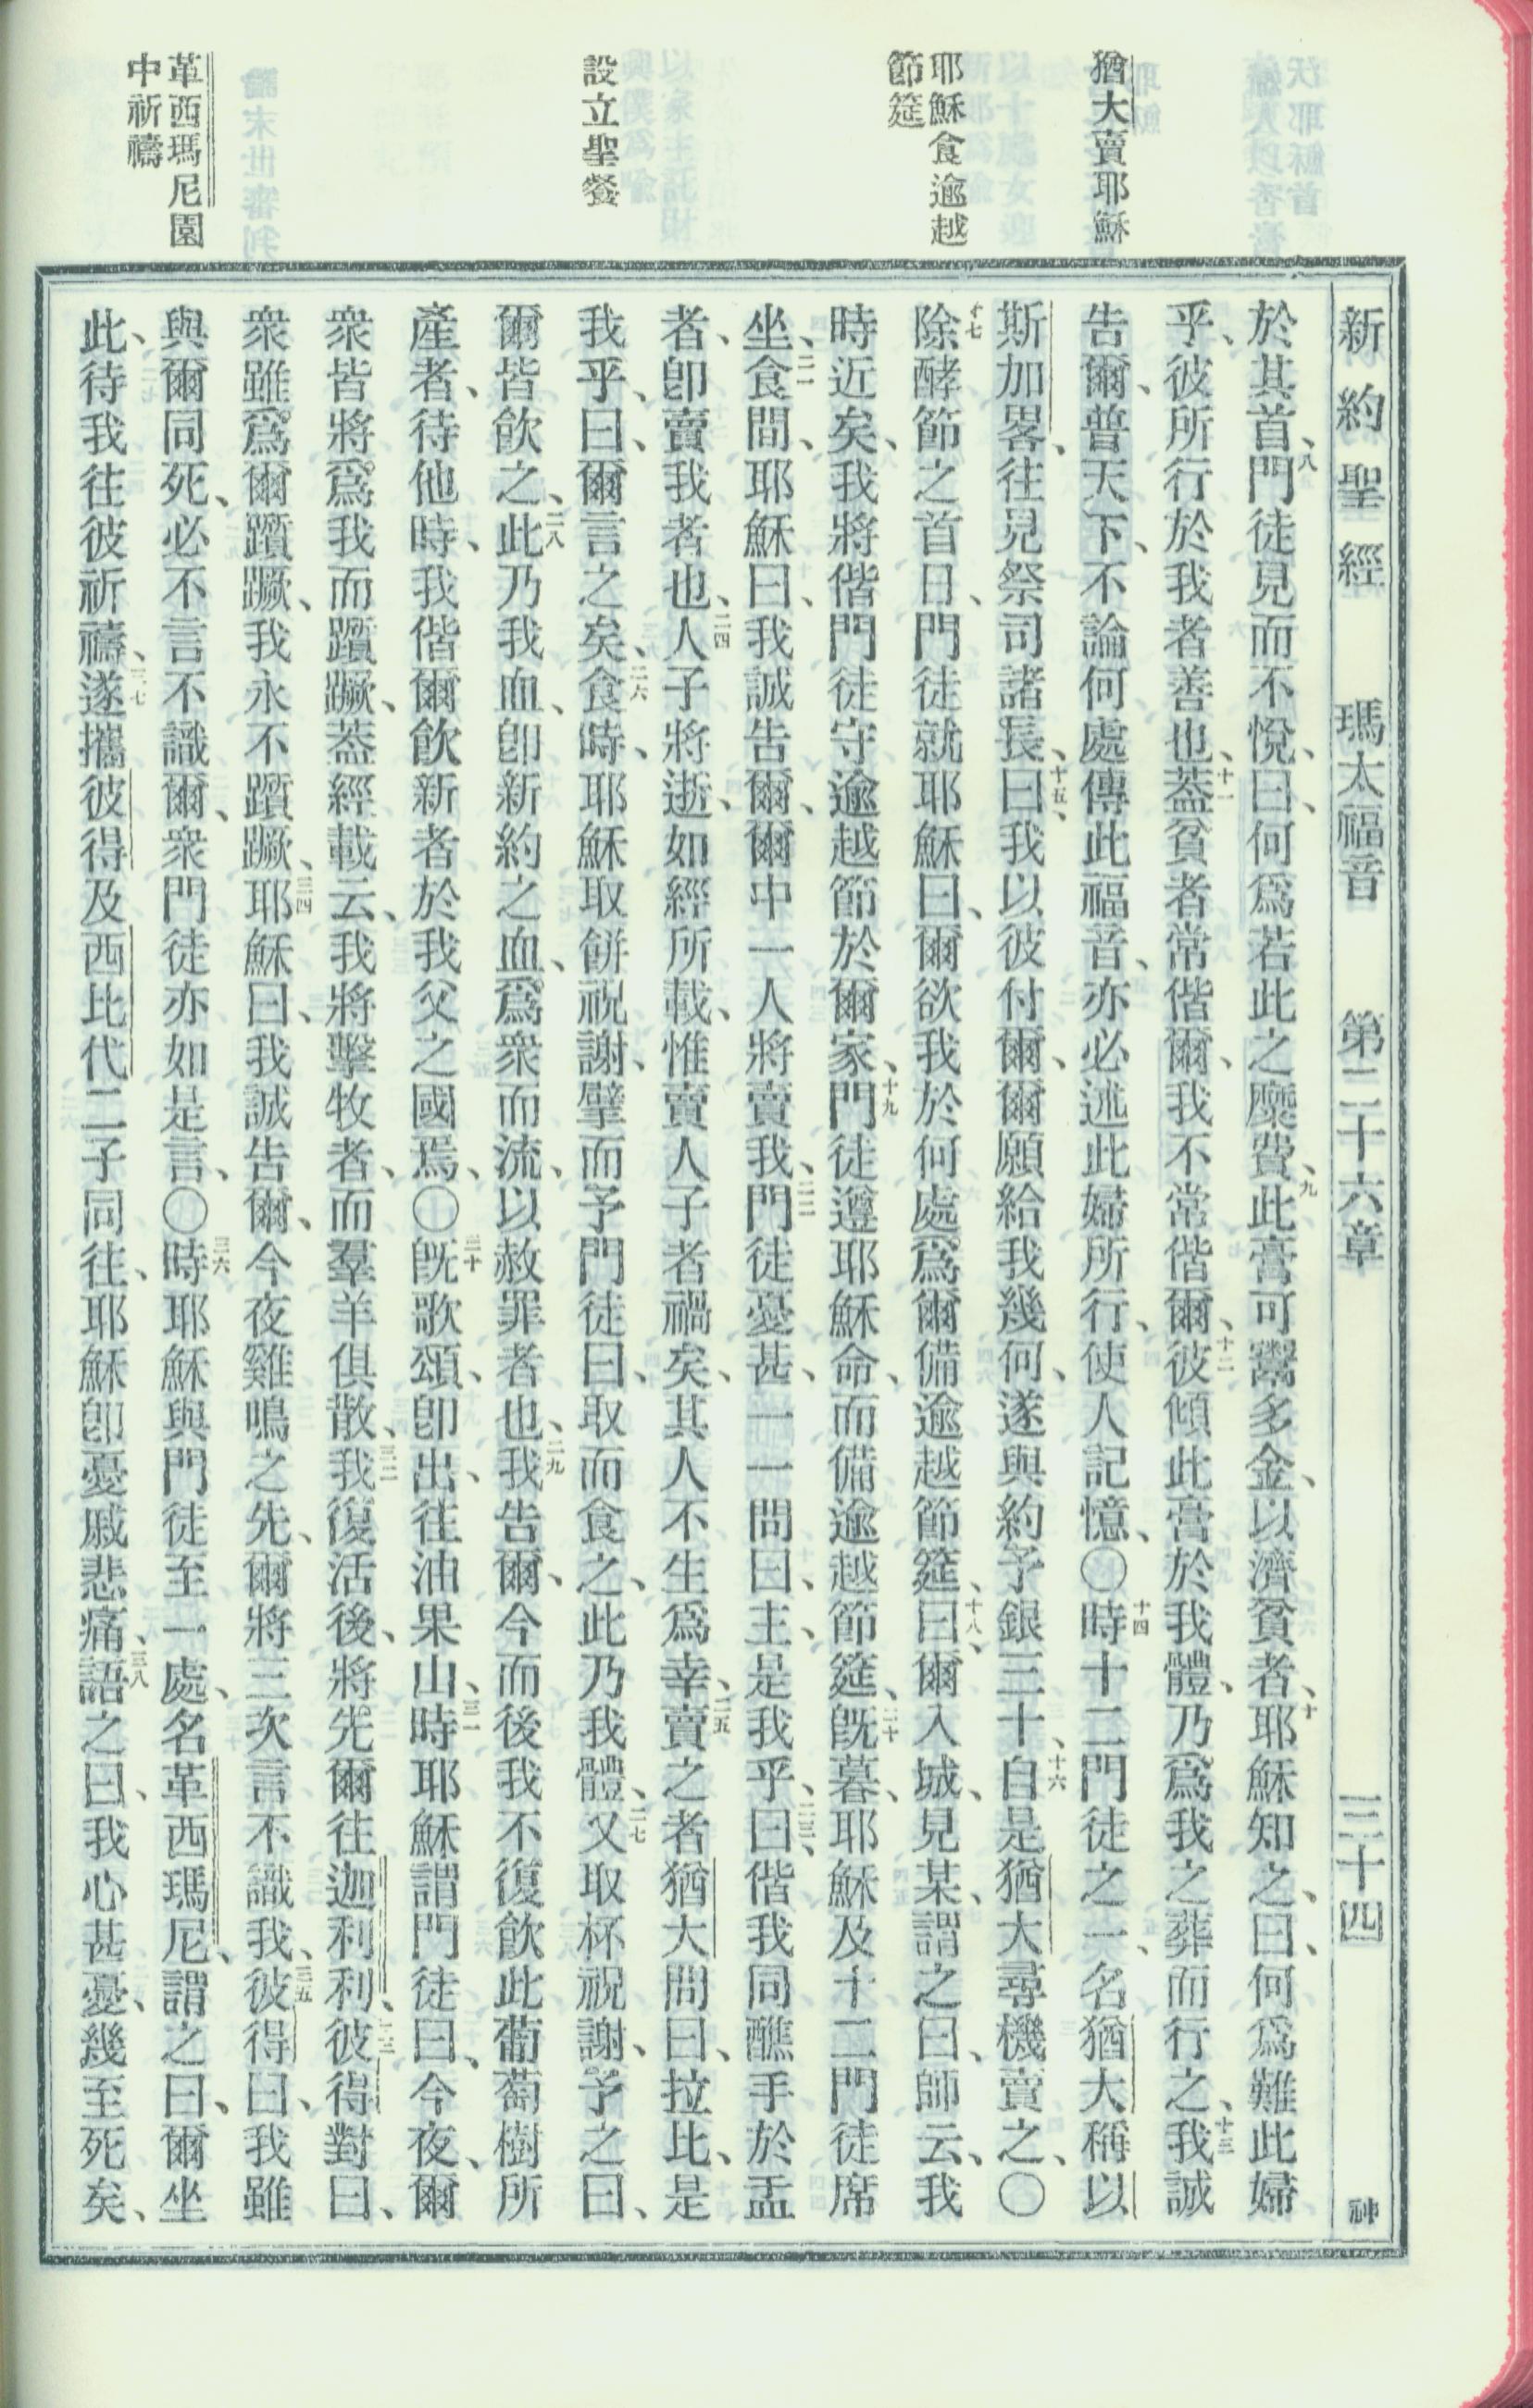 新約聖經 瑪太福音 第二十六章 三十四 神
猶大賣耶穌
耶穌食逾越
節筵
設立聖餐
革西瑪尼園
中祈禱
於其首、八門徒見而不悅、曰、何爲若此之糜費、九此膏可鬻多金、以濟貧者、十耶穌知之、曰、何爲難此婦
乎、彼所行於我者善也、十一蓋貧者常偕爾、我不常偕爾、十二彼傾此膏於我體、乃爲我之葬而行之、十三我誠
告爾、普天下、不論何處傳此福音、亦必述此婦所行、使人記憶、〇十四時十二門徒之一、名猶大稱以
斯加畧、往見祭司諸長、十五曰、我以彼付爾、爾願給我幾何、遂與約予銀三十、十六自是猶大尋機賣之、〇
十七除酵節之首日、門徒就耶穌曰、爾欲我於何處爲爾備逾越節筵、十八曰、爾入城、見某、謂之曰、師云、我
時近矣、我將偕門徒守逾越節於爾家、十九門徒遵耶穌命、而備逾越節筵、二十旣暮、耶穌及十二門徒席
坐、二一食間、耶穌曰、我誠告爾、爾中一人將賣我、二二門徒憂甚、一一問曰、主、是我乎、二三曰、偕我同醮手於盂
者、卽賣我者也、二四人子將逝、如經所載、惟賣人子者禍矣、其人不生爲幸、二五賣之者猶大問曰、拉比、是
我乎、曰、爾言之矣、二六食時、耶穌取餅祝謝、擘而予門徒曰、取而食之、此乃我體、二七又取杯祝謝、予之曰、
爾皆飲之、二八此乃我血、卽新約之血、爲衆而流、以赦罪者也、二九我告爾、今而後我不復飲此葡萄樹所
產者、待他時、我偕爾飲新者於我父之國焉、〇三十旣歌頌、卽出、往油果山、三一時耶穌謂門徒曰、今夜、爾
衆皆將爲我而躓蹶、蓋經載云、我將擊牧者、而羣羊俱散、三二我復活後、將先爾往迦利利、三三彼得對曰、
衆雖爲爾躓蹶、我永不躓蹶、三四耶穌曰、我誠告爾、今夜雞鳴之先、爾將三次言不識我、三五彼得曰、我雖
與爾同死、必不言不識爾、衆門徒亦如是言、〇三六時耶穌與門徒至一處、名革西瑪尼、謂之曰、爾坐
此、待我往彼祈禱、三七遂攜彼得及西比代二子同往、耶穌卽憂戚悲痛、三八語之曰、我心甚憂、幾至死矣、